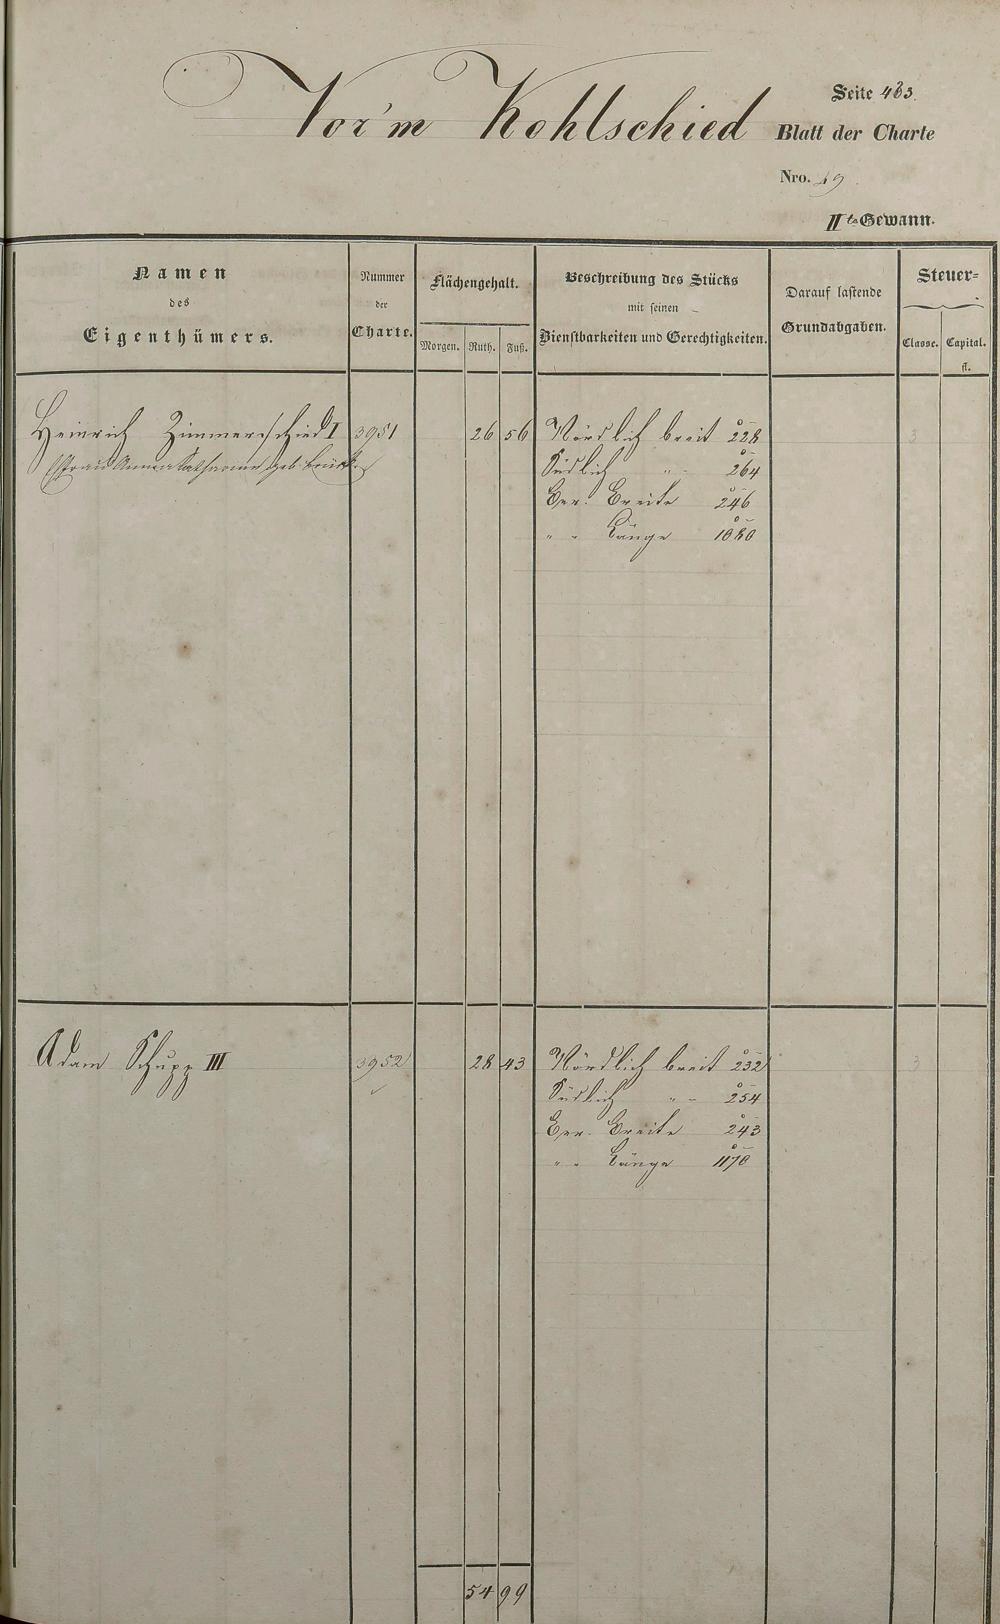 Vor'm Kohlschied
Seite 483.
Blatt der Charte
Nro. 49
IIte Gewann.
Namen
des
Eigenthümers.
Nummer
der
Charte.
Flächengehalt.
Morgen. Ruth. Fuß.
Beschreibung des Stücks
mit seinen
Dienstbarkeiten und Gerechtigkeiten.
Darauf lastende
Grundabgaben.
Steuer=
Classe. Capital.
fl.
Heinrich Zimmerschied I 3951 26 56 Nördlich breit 228 3
(Frau Anna Katharine geb. Südlich " - 264
Ger. Breite 246
" - Länge 1080
Adam Schupp III 3952 28 43 Nördlich breit 232 3
Südlich " - 254
Ger. Breite 243
" - Länge 1170
54 99